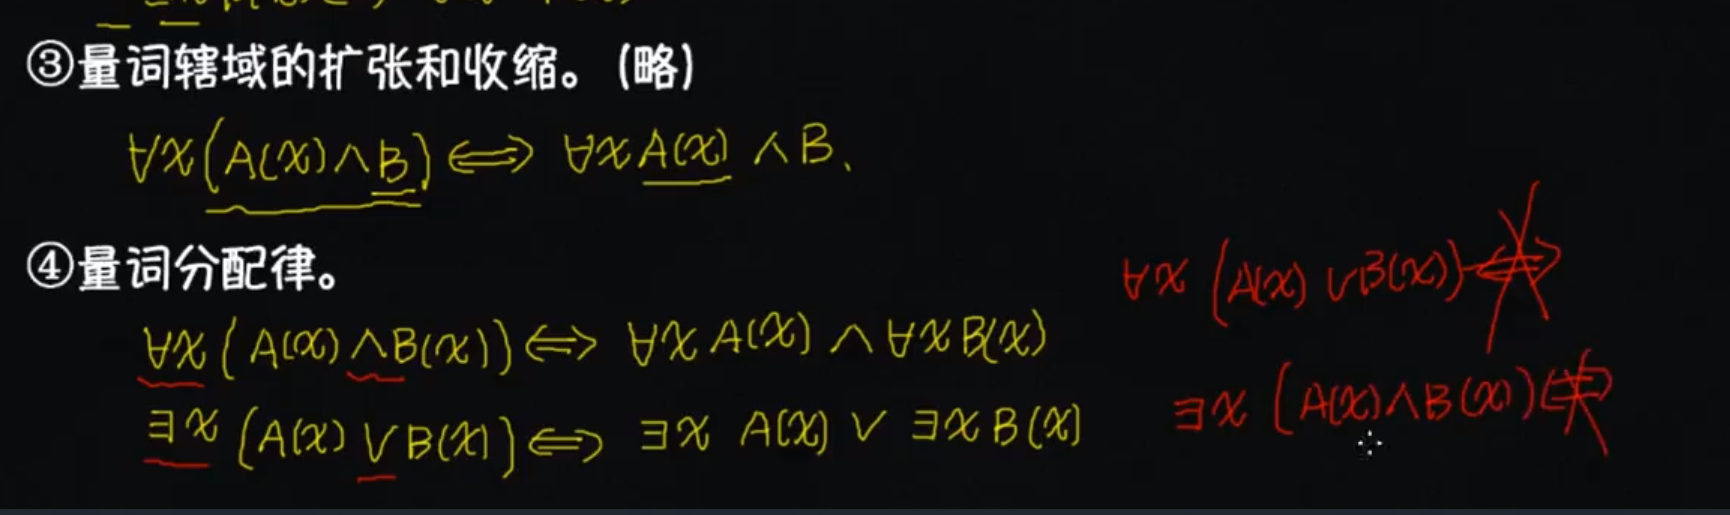 ③量词辖域的扩张和收缩。(略)
∀x(A(x)∧B)⟺∀xA(x)∧B、
④量词分配律。
∀x(A(x)∧B(x))⟺∀xA(x)∧∀xB(x)
∃x(A(x)∨B(x))⟺∃x A(x)∨∃xB(x)
∀x(A(x)∨B(x))⟺
∃x(A(x)∧B(x))⟺